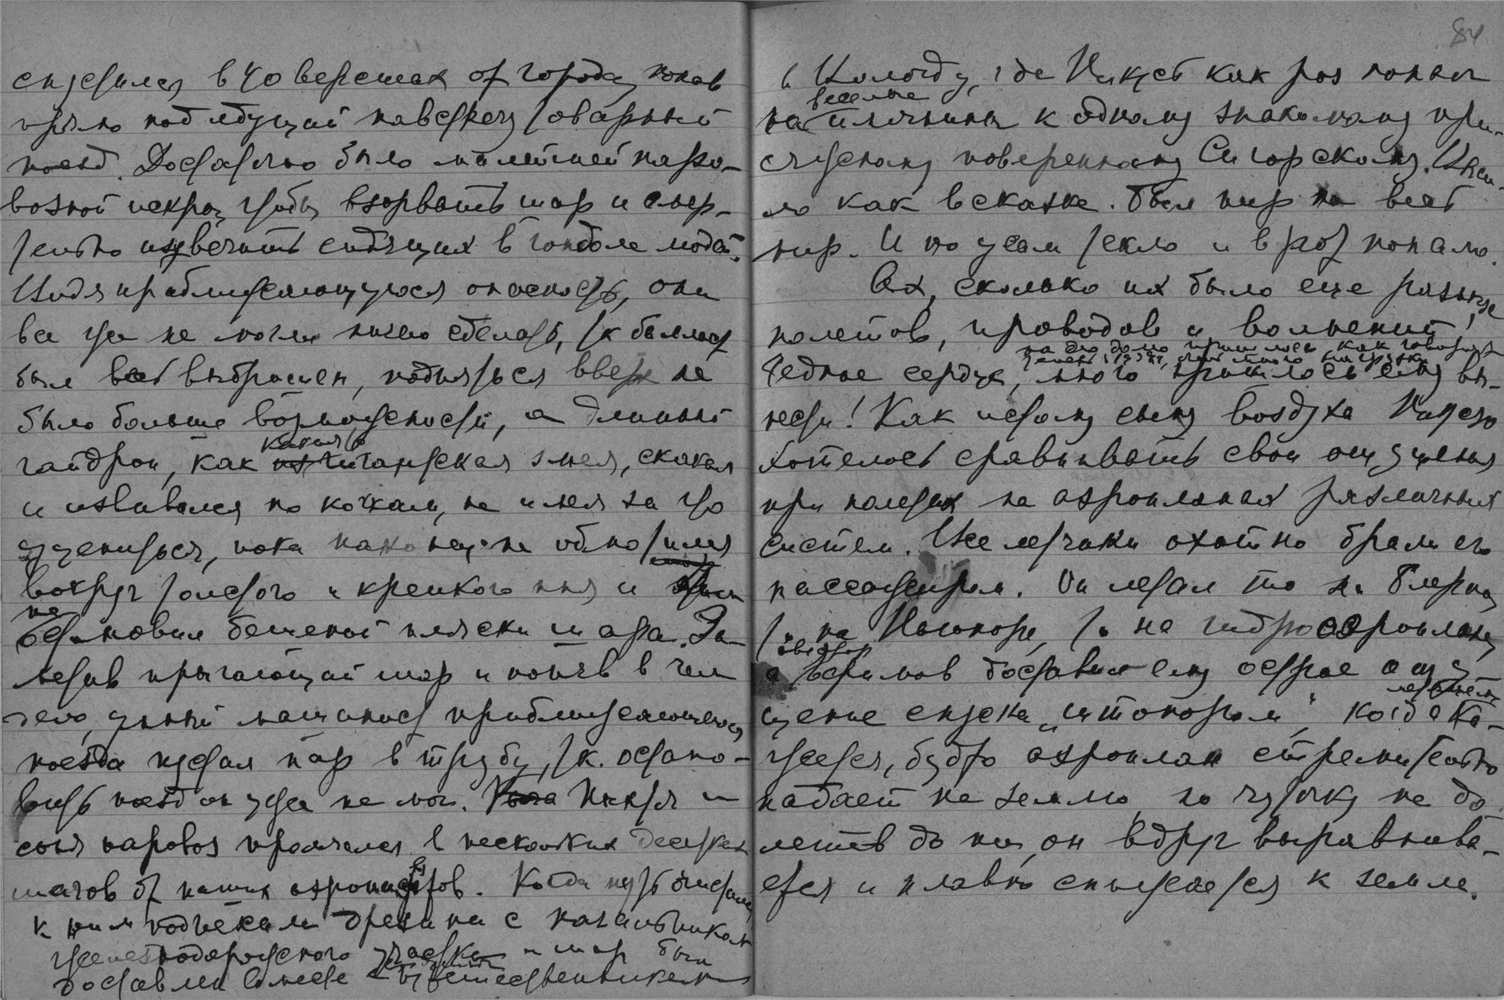 снизился в 40 верстах от города, попав
прямо под идущий навстречу товарный
поезд. Достаточно было малейшей паро-
возной искры, чтобы взорвать шар и смер-
тельно изувечить сидящих в гондоле людей.
Видя приближающуюся опасность, они
все же не могли ничего сделать, т.к. балласт
был весь выброшен, подняться вверх не
было больше возможности, а длинный
гайдроп, как какая-то гигантская змея, скакал
и извивался по кочкам, не имея за что
уцепиться, пока наконец не обмотался
вокруг толстого и крепкого пня и
не остановил бешеной пляски шара. За-
метив прыгающий шар и поняв в чем
дело, умный машинист приближающегося
поезда пустил пар в трубу, т.к. остано-
вить поезд он уже не мог. Пыхтя и
сопя паровоз промчался в нескольких десятках
шагов от наших аэронавтов. Когда путь очистился,
к ним подъехали дрезина с начальником
железнодорожного участка и шар был
доставлен вместе с путешественниками
84
в Вологду, где Пикуст как раз попал
на веселые именины к одному знакомому при-
сяжному поверенному Сигорскому. Вышло
как в сказке. Был пир на весь
мир. И по усам текло и в рот попало.
Ах, сколько их было еще разных
полетов, проводов и волнений!
на его долю пришлось как говорят
Бедное сердце, много пришлось ему вы-
нести! Как истому сыну воздуха
хотелось сравнивать свои ощущения
при полетах на аэропланах различных
систем. Все летчики охотно брали его
пассажиром. Он летал то на Блерио,
то на Ньюпоре, то на гидроаэроплане,
а авиатор Ефимов доставил ему острое ощу-
щение спуска „штопором“, когда ка-
жется, будто аэроплан стремительно
падает на землю, но чуточку не до-
летев до нее, он вдруг выравнива-
ется и плавно снижается к земле.